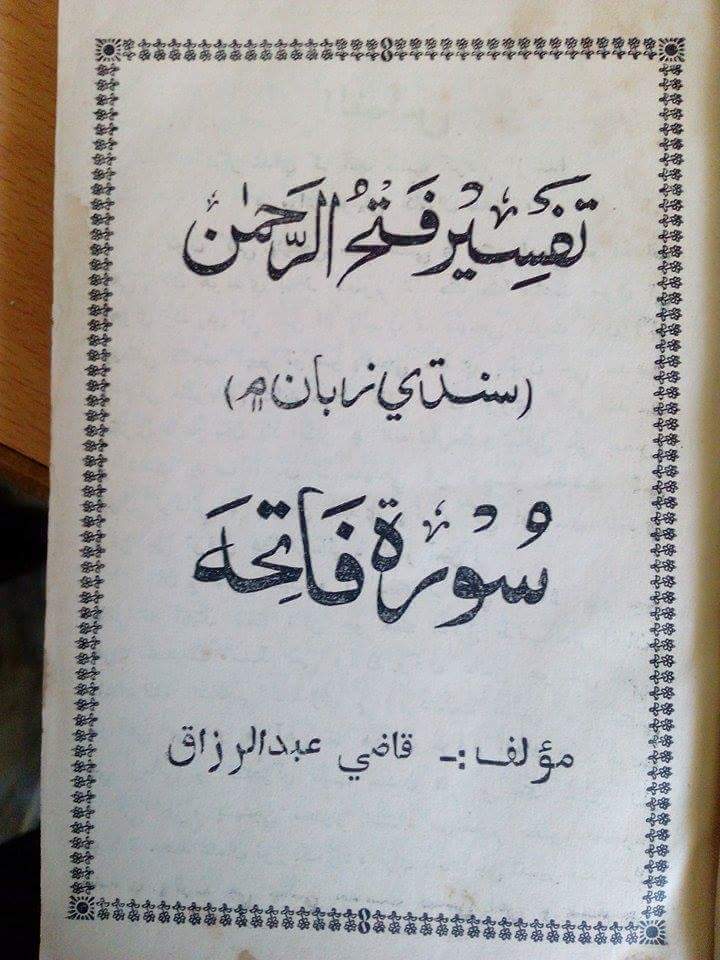 تفسير فَتحُ الرَّحمٰن
(سنڌي زبان ۾)
سُورة فَاتِحَه
مؤلف :- قاضي عبدالرزاق